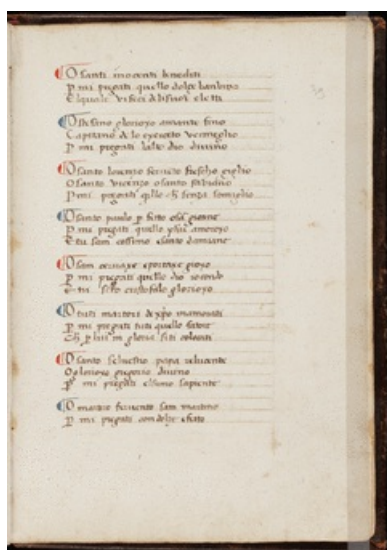 O santi inocenti beneditti
P mi pregati quello dolce bambino
E lquale vi feci deli suoi eletti
O Stefano glorioxo amante fino
Capitano de lo exercito vermeglio
P mi pregati lalto dio divino
O santo lorenzo fervente frescho giglio
O santo vicenzo o santo
P mi pregati qllo ch senza someglio
O santo paulo p fetto
P mi pregati quello yhu amoroxo
E tu sam cossimo e santo damiano
O sam
P mi pregati quello dio iocondo
E tu cristofalo glorioxo
O tuti martori de xpo
P mi pregati tuti quello
Ch p lui in gloria siti colocati
O santo selvestro papa relucente
O glorioxo gregorio divino
P mi pregati sapiente
O martire fervente sam martino
P mi pregati con dolce